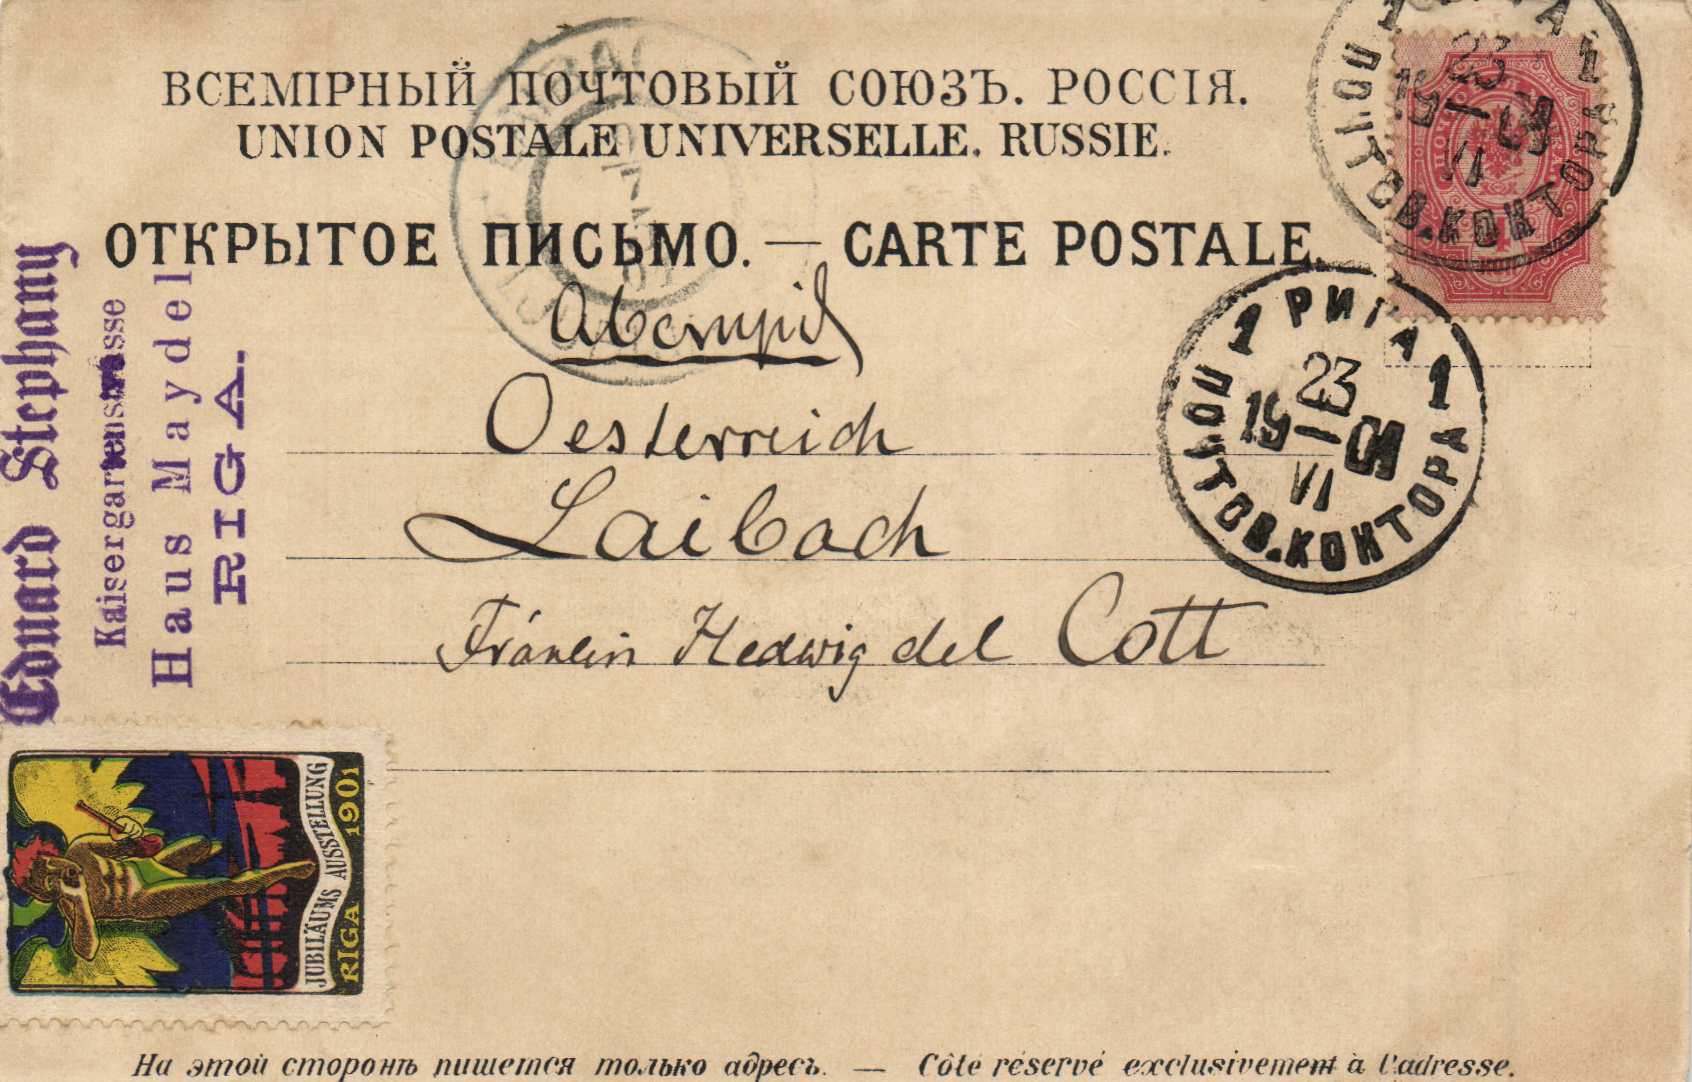 ВСЕМІРНЫЙ ПОЧТОВЫЙ СОЮЗЪ. РОССІЯ.
UNION POSTALE UNIVERSELLE. RUSSIE.
ОТКРЫТОЕ ПИСЬМО. — CARTE POSTALE.
Австрія
Oesterreich
Laibach
Fräulein Hedwig del Cott
Eduard Stephany
Kaisergartenstrasse
Haus Maydel
RIGA.
1 РИГА 1
23
19 — 01
VI
ПОЧТОВ. КОНТОРА
1 1
23
19 — 01
VI
ПОЧТОВ. КОНТОРА
JUBILÄUMS AUSSTELLUNG
RIGA 1901
На этой сторонѣ пишется только адресъ. — Côté réservé exclusivement à l'adresse.